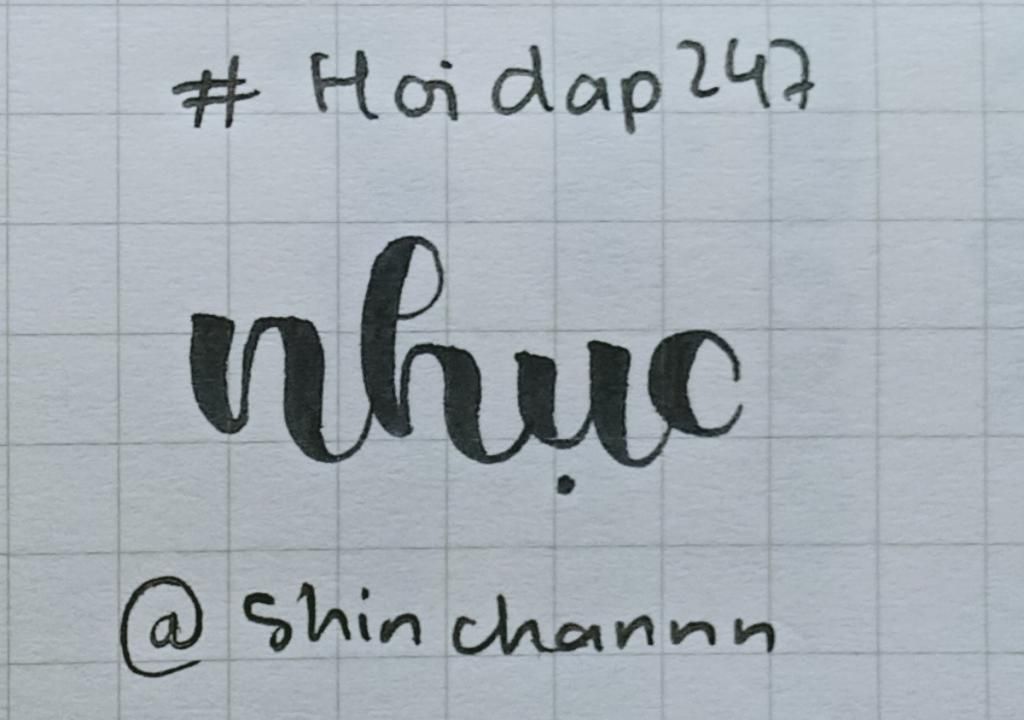 # Hoidap247
nhục
@shinchannnn